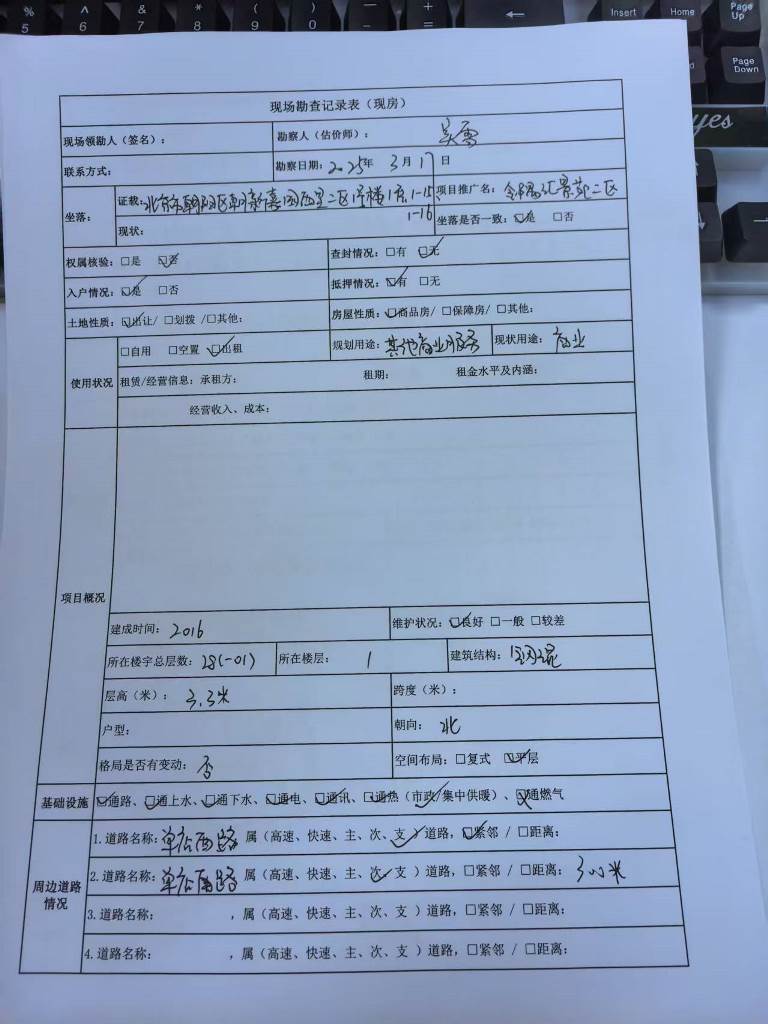 % 5
^ 6
& 7
* 8
( 9
) 0
— -
+ =
←
Insert
Home
Page Up
Page Down
yes
现场勘查记录表（现房）
现场领勘人（签名）：
勘察人（估价师）：
联系方式：
勘察日期：2025年 3月17日
坐落：
证载：北京市朝阳区朝新嘉园西里二区 号楼1层1-15、
1-16
项目推广名： 汇景苑二区
现状：
坐落是否一致：☑是 □否
权属核验：□是 ☑否
查封情况：□有 ☑无
入户情况：☑是 □否
抵押情况：☑有 □无
土地性质：☑出让/ □划拨 /□其他：
房屋性质：☑商品房/ □保障房/ □其他：
使用状况
□自用 □空置 ☑出租
规划用途：其他商业服务
现状用途：商业
租赁/经营信息：承租方： 租期： 租金水平及内涵：
经营收入、成本：
项目概况
建成时间：2016
维护状况：☑良好 □一般 □较差
所在楼宇总层数：28(-01)
所在楼层：1
建筑结构：钢混
层高（米）：3.3米
跨度（米）：
户型：
朝向：北
格局是否有变动：否
空间布局：□复式 ☑平层
基础设施
☑通路、☑通上水、☑通下水、☑通电、☑通讯、☑通热（市政/集中供暖）、☒通燃气
周边道路情况
1.道路名称： 西路 属（高速、快速、主、次、支）道路，☑紧邻 / □距离：
2.道路名称： 路 属（高速、快速、主、次、支 ）道路，□紧邻 / □距离：300米
3.道路名称： ，属（高速、快速、主、次、支 ）道路，□紧邻 / □距离：
4.道路名称： ，属（高速、快速、主、次、支 ）道路，□紧邻 / □距离：